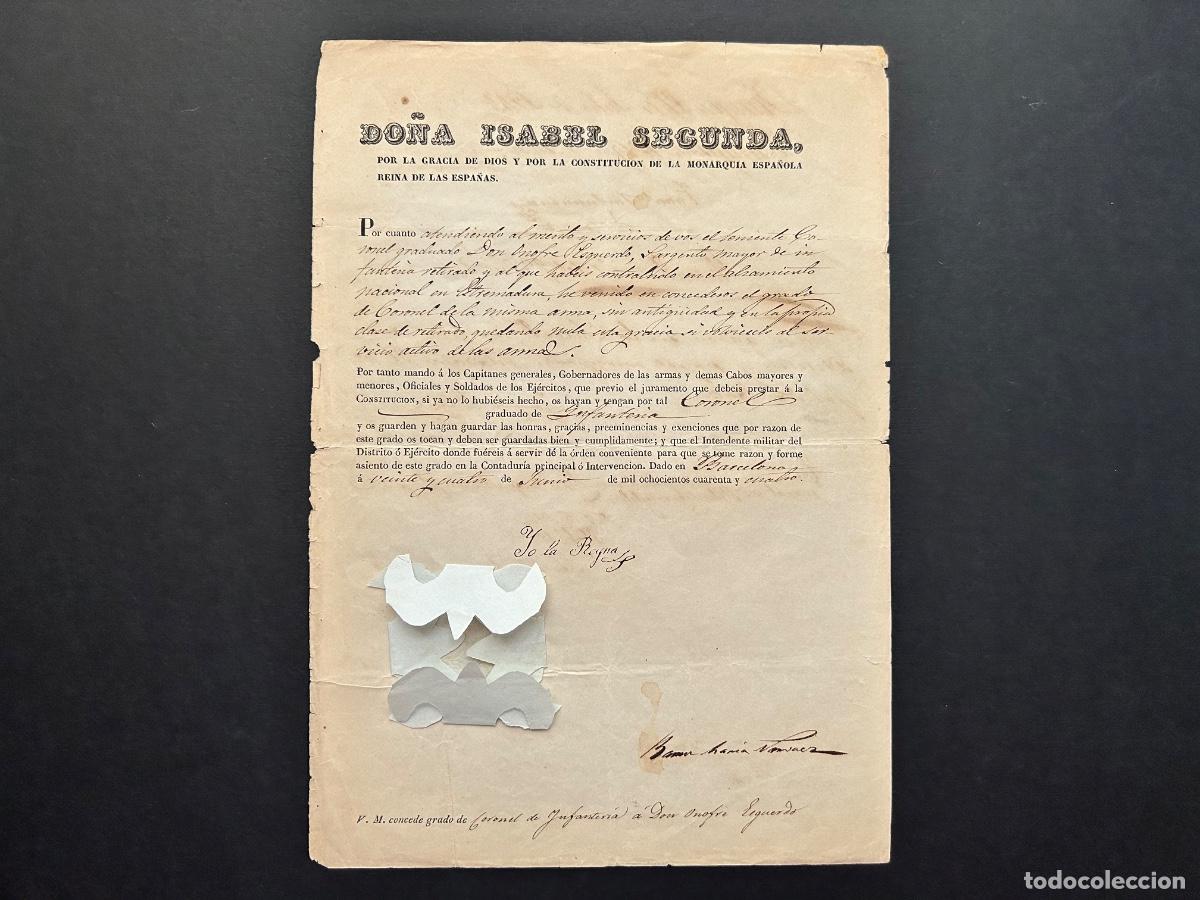 DOÑA ISABEL SEGUNDA,
POR LA GRACIA DE DIOS Y POR LA CONSTITUCION DE LA MONARQUIA ESPAÑOLA
REINA DE LAS ESPAÑAS.
Por cuanto atendiendo al merito y servicios de vos el teniente Co-
ronel graduado Don Onofre Esquerdo, Sargento mayor de in
fanteria retirado y al que habeis contraido en el alzamiento
nacional en Estremadura, he venido en concederos el grado
de Coronel de la misma arma, sin antigüedad y en la propia
clase de retirado, quedando nula esta gracia si volvieseis al ser-
vicio activo de las armas.
Por tanto mando á los Capitanes generales, Gobernadores de las armas y demas Cabos mayores y
menores, Oficiales y Soldados de los Ejércitos, que previo el juramento que debeis prestar á la
CONSTITUCION, si ya no lo hubiéseis hecho, os hayan y tengan por tal Coronel
graduado de Infanteria
y os guarden y hagan guardar las honras, gracias, preeminencias y exenciones que por razon de
este grado os tocan y deben ser guardadas bien y cumplidamente; y que el Intendente militar del
Distrito ó Ejército donde fuéreis á servir dé la órden conveniente para que se tome razon y forme
asiento de este grado en la Contaduría principal ó Intervencion. Dado en Barcelona
á veinte y cuatro de Junio de mil ochocientos cuarenta y cuatro.
Yo la Reyna
Ramon Maria Narvaez
V. M. concede grado de Coronel de Infanteria á Don Onofre Esquerdo
todocoleccion